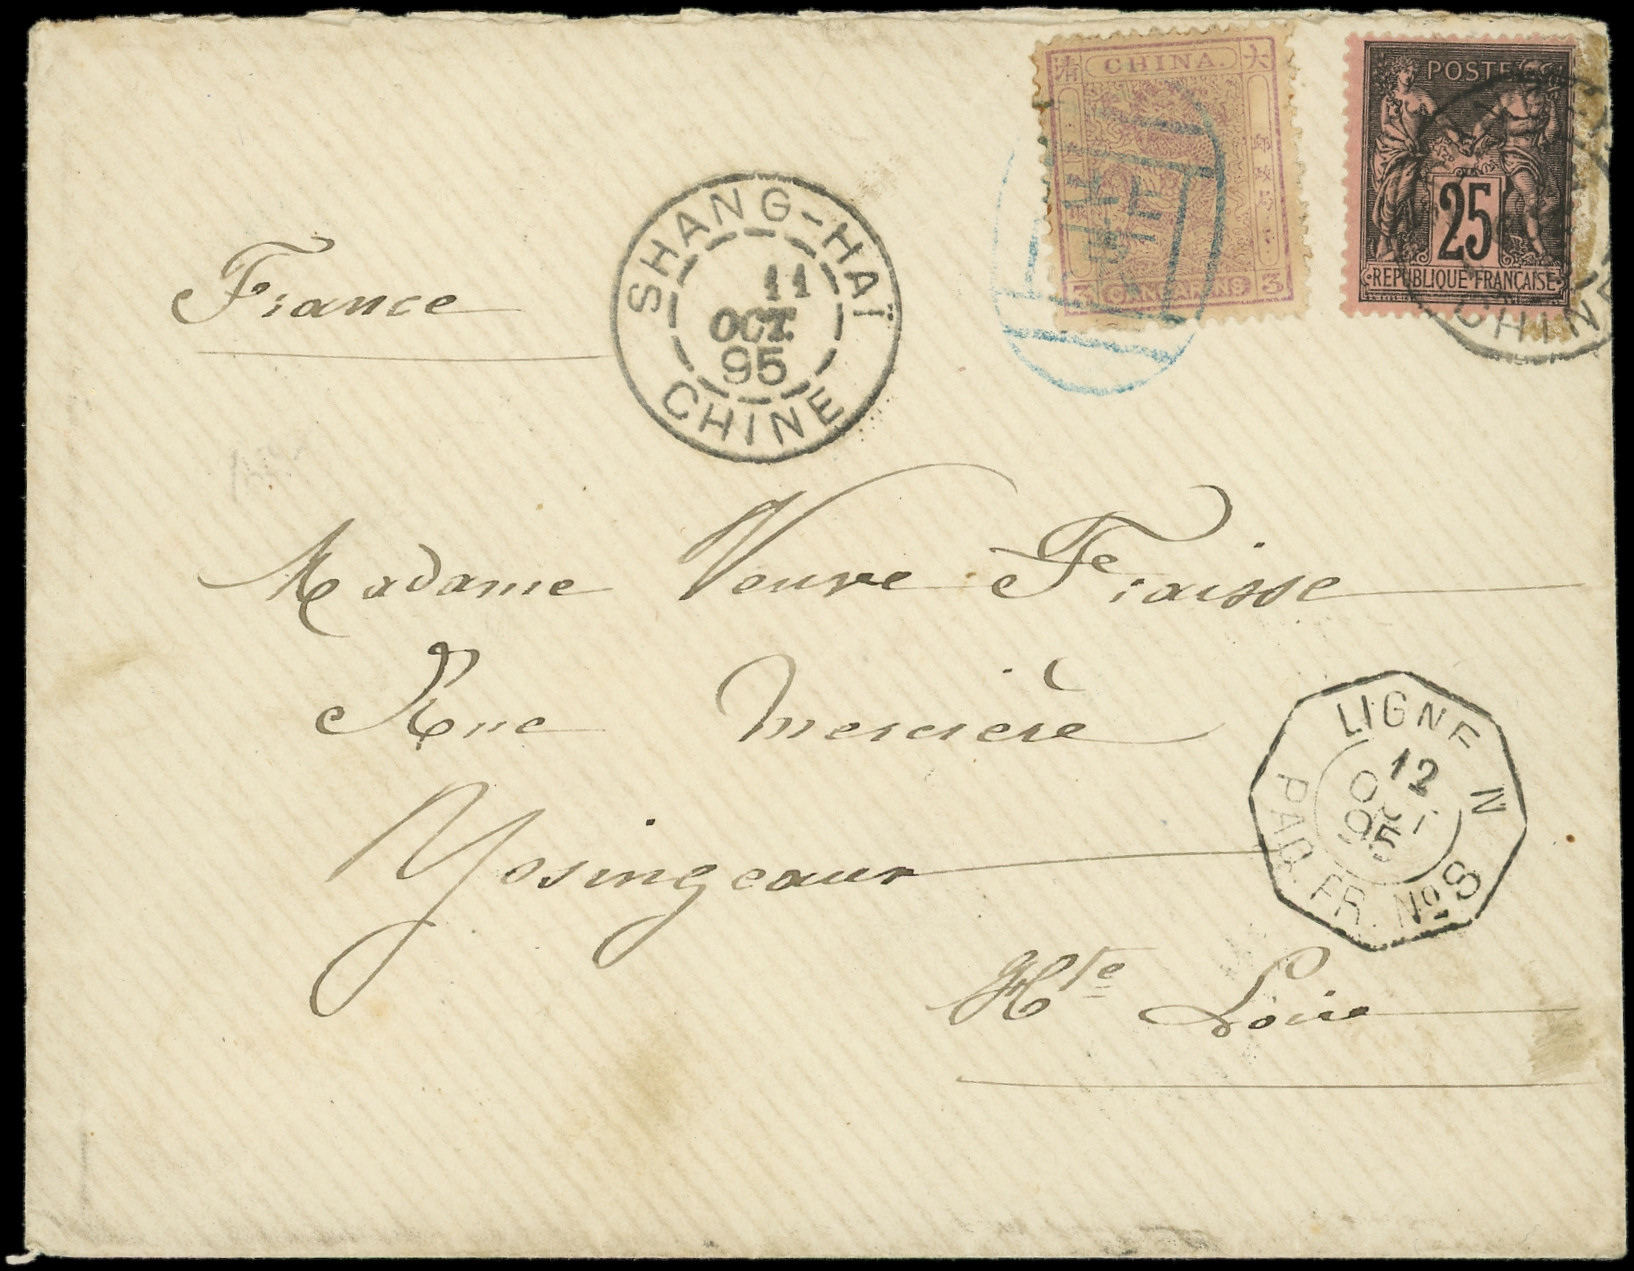 清 CHINA. 大
郵政局
3 CANDARINS 3
POSTES
25
REPUBLIQUE FRANÇAISE
CHINE
SHANG-HAÏ
11
OCT.
95
CHINE
France
Madame Veuve Fraisse
Rue Mercière
Yssingeaux
Hte Loire
LIGNE N
12
OCT
95
PAQ. FR. No 8